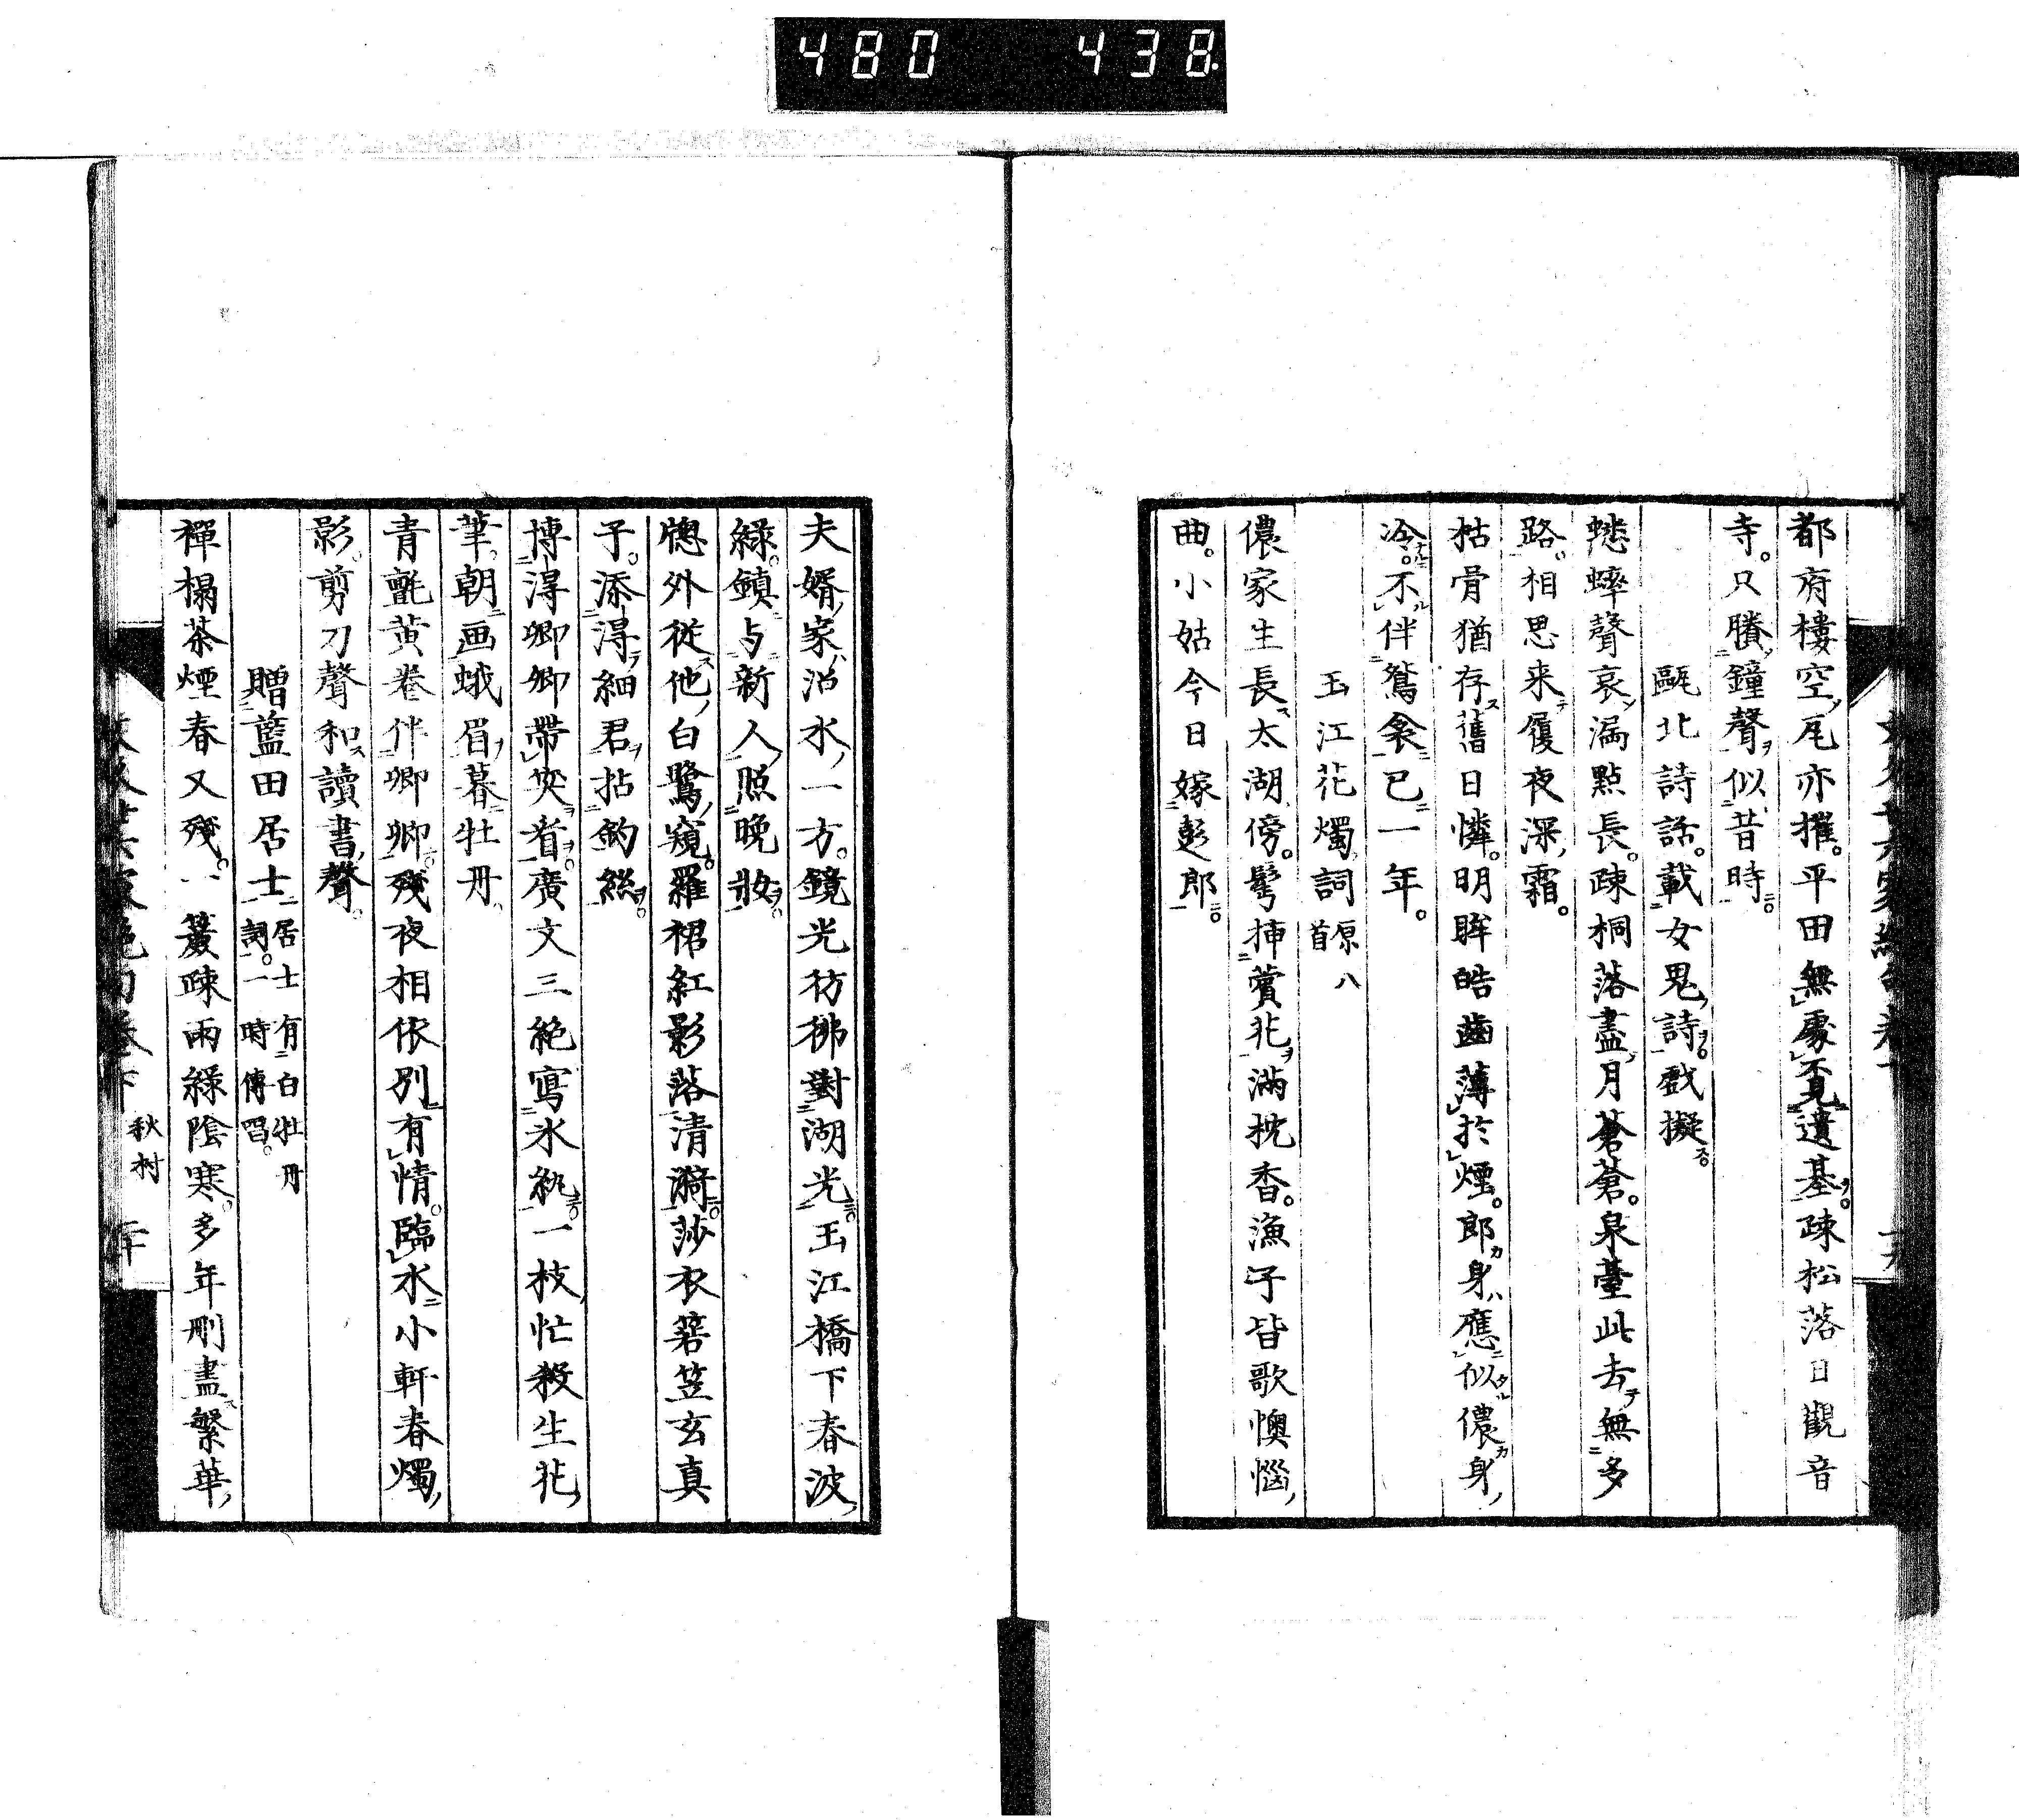 480 438
都府樓空瓦亦摧。平田無處覓遺基。疎松落日觀音
寺。只賸鐘聲似昔時。
甌北詩話。載女鬼詩。戲擬。
蟋蟀聲哀漏點長。疎桐落盡月蒼蒼。泉臺此去無多
路。相思来履夜深霜。
枯骨猶存舊日憐。明眸皓齒薄於煙。郎身應似儂身
冷。不伴鴛衾已一年。
玉江花燭詞 原八首
儂家生長太湖傍。髩挿蘭花滿枕香。漁子皆歌懊惱
曲。小姑今日嫁彭郎。
夫婿家治水一方。鏡光彷彿對湖光。玉江橋下春波
綠。鎮与新人照晚妝。
牕外従他白鷺窺。羅裙紅影落清漪。莎衣蒻笠玄真
子。添得細君拈釣絲。
博得卿卿帶笑看。廣文三絶寫氷紈。一枝忙殺生花
筆。朝画蛾眉暮牡丹。
青氈黄卷伴卿卿。殘夜相依別有情。臨水小軒春燭
影。剪刀聲和讀書聲。
贈藍田居士 居士有白牡丹詞。一時傳唱。
禪榻茶煙春又殘。一簾疎雨緑陰寒。多年刪盡繁華
卷下 秋村